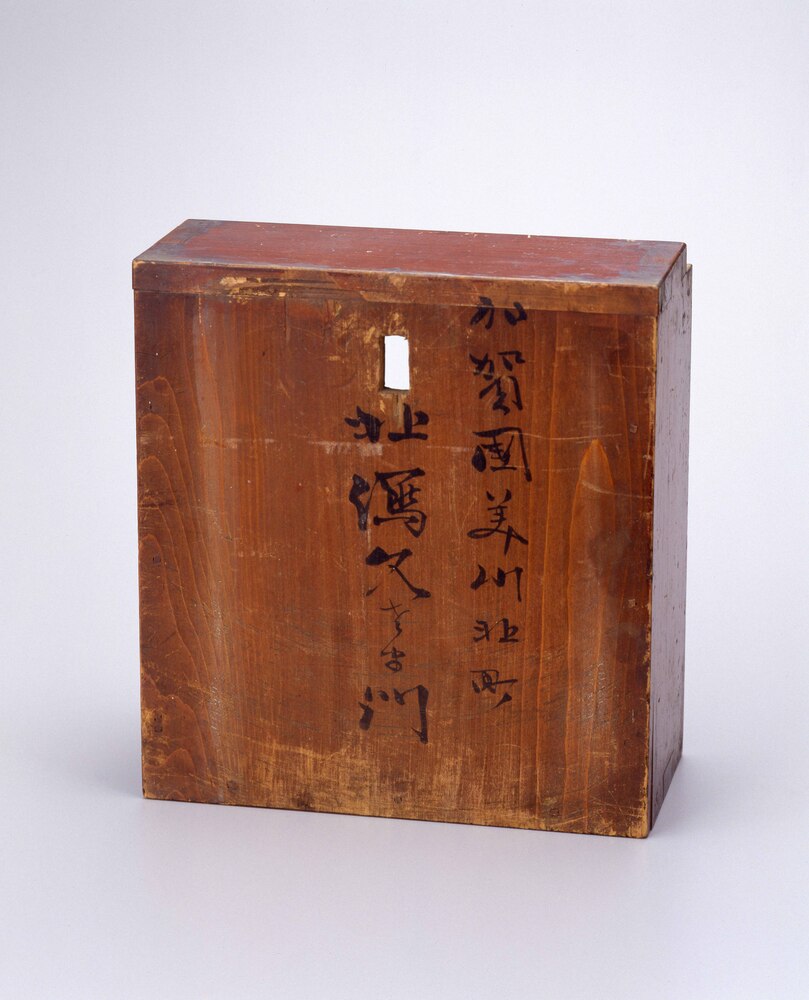 加賀國美川北町
北潟久左衛門